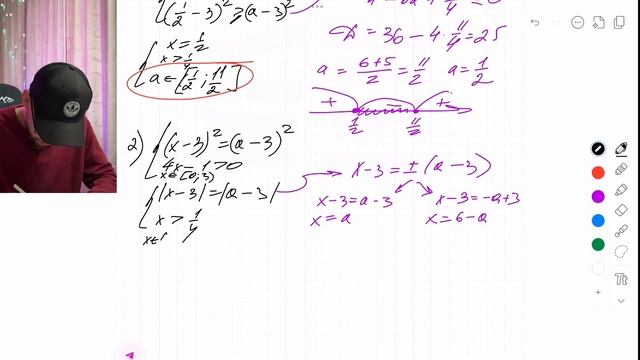 (1/2 - 3)² ≥ (a - 3)²
x = 1/2
x > 1/4
a ∈ [1/2 ; 11/2]
D = 36 - 4 · 11/4 = 25
a = (6+5)/2 = 11/2   a = 1/2
+ +
1/2   11/2
2) (x - 3)² = (a - 3)²
4x - 1 > 0
x ∈ [0; 3)
|x - 3| = |a - 3|
x > 1/4
x ∈ [
x - 3 = ± (a - 3)
x - 3 = a - 3   x - 3 = -a + 3
x = a   x = 6 - a
Tt